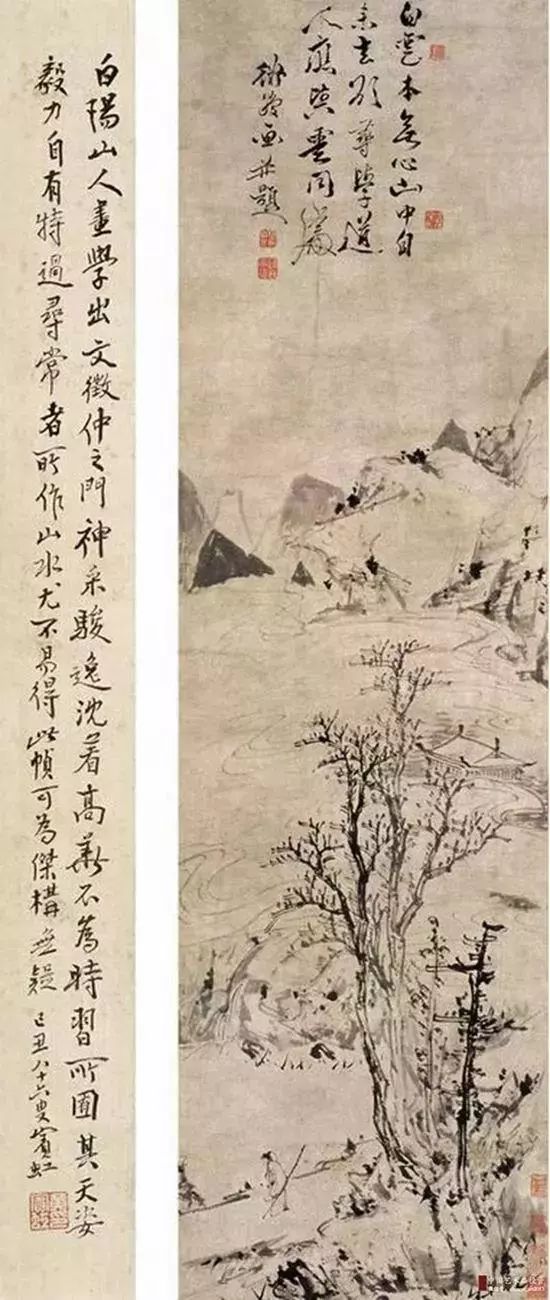 白雲本無心山中自
来去欲尋學道
人應與雲同處
道復画并題
白陽山人畫學出文徵仲之門神采駿逸沈着高華不為時習所囿其天姿
毅力自有特過尋常者所作山水尤不易得此幀可為傑構無疑 己丑八十六叟賓虹